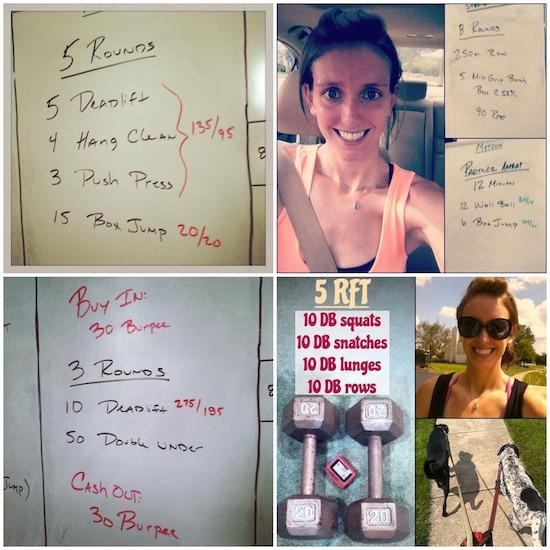 5 Rounds
5 Deadlift
4 Hang Clean
3 Push Press
135/95
15 Box Jump 20/20
8
8 Rounds
250m Row
90 Rest
Metcon
Partner AMRAP
12 Minutes
12 Wall Ball 20/14
6 Box Jump
Buy In:
30 Burpee
3 Rounds
10 Deadlift 275/185
50 Double Under
Cash Out:
30 Burpee
Jump)
8
5 RFT
10 DB squats
10 DB snatches
10 DB lunges
10 DB rows
20
20
20
20